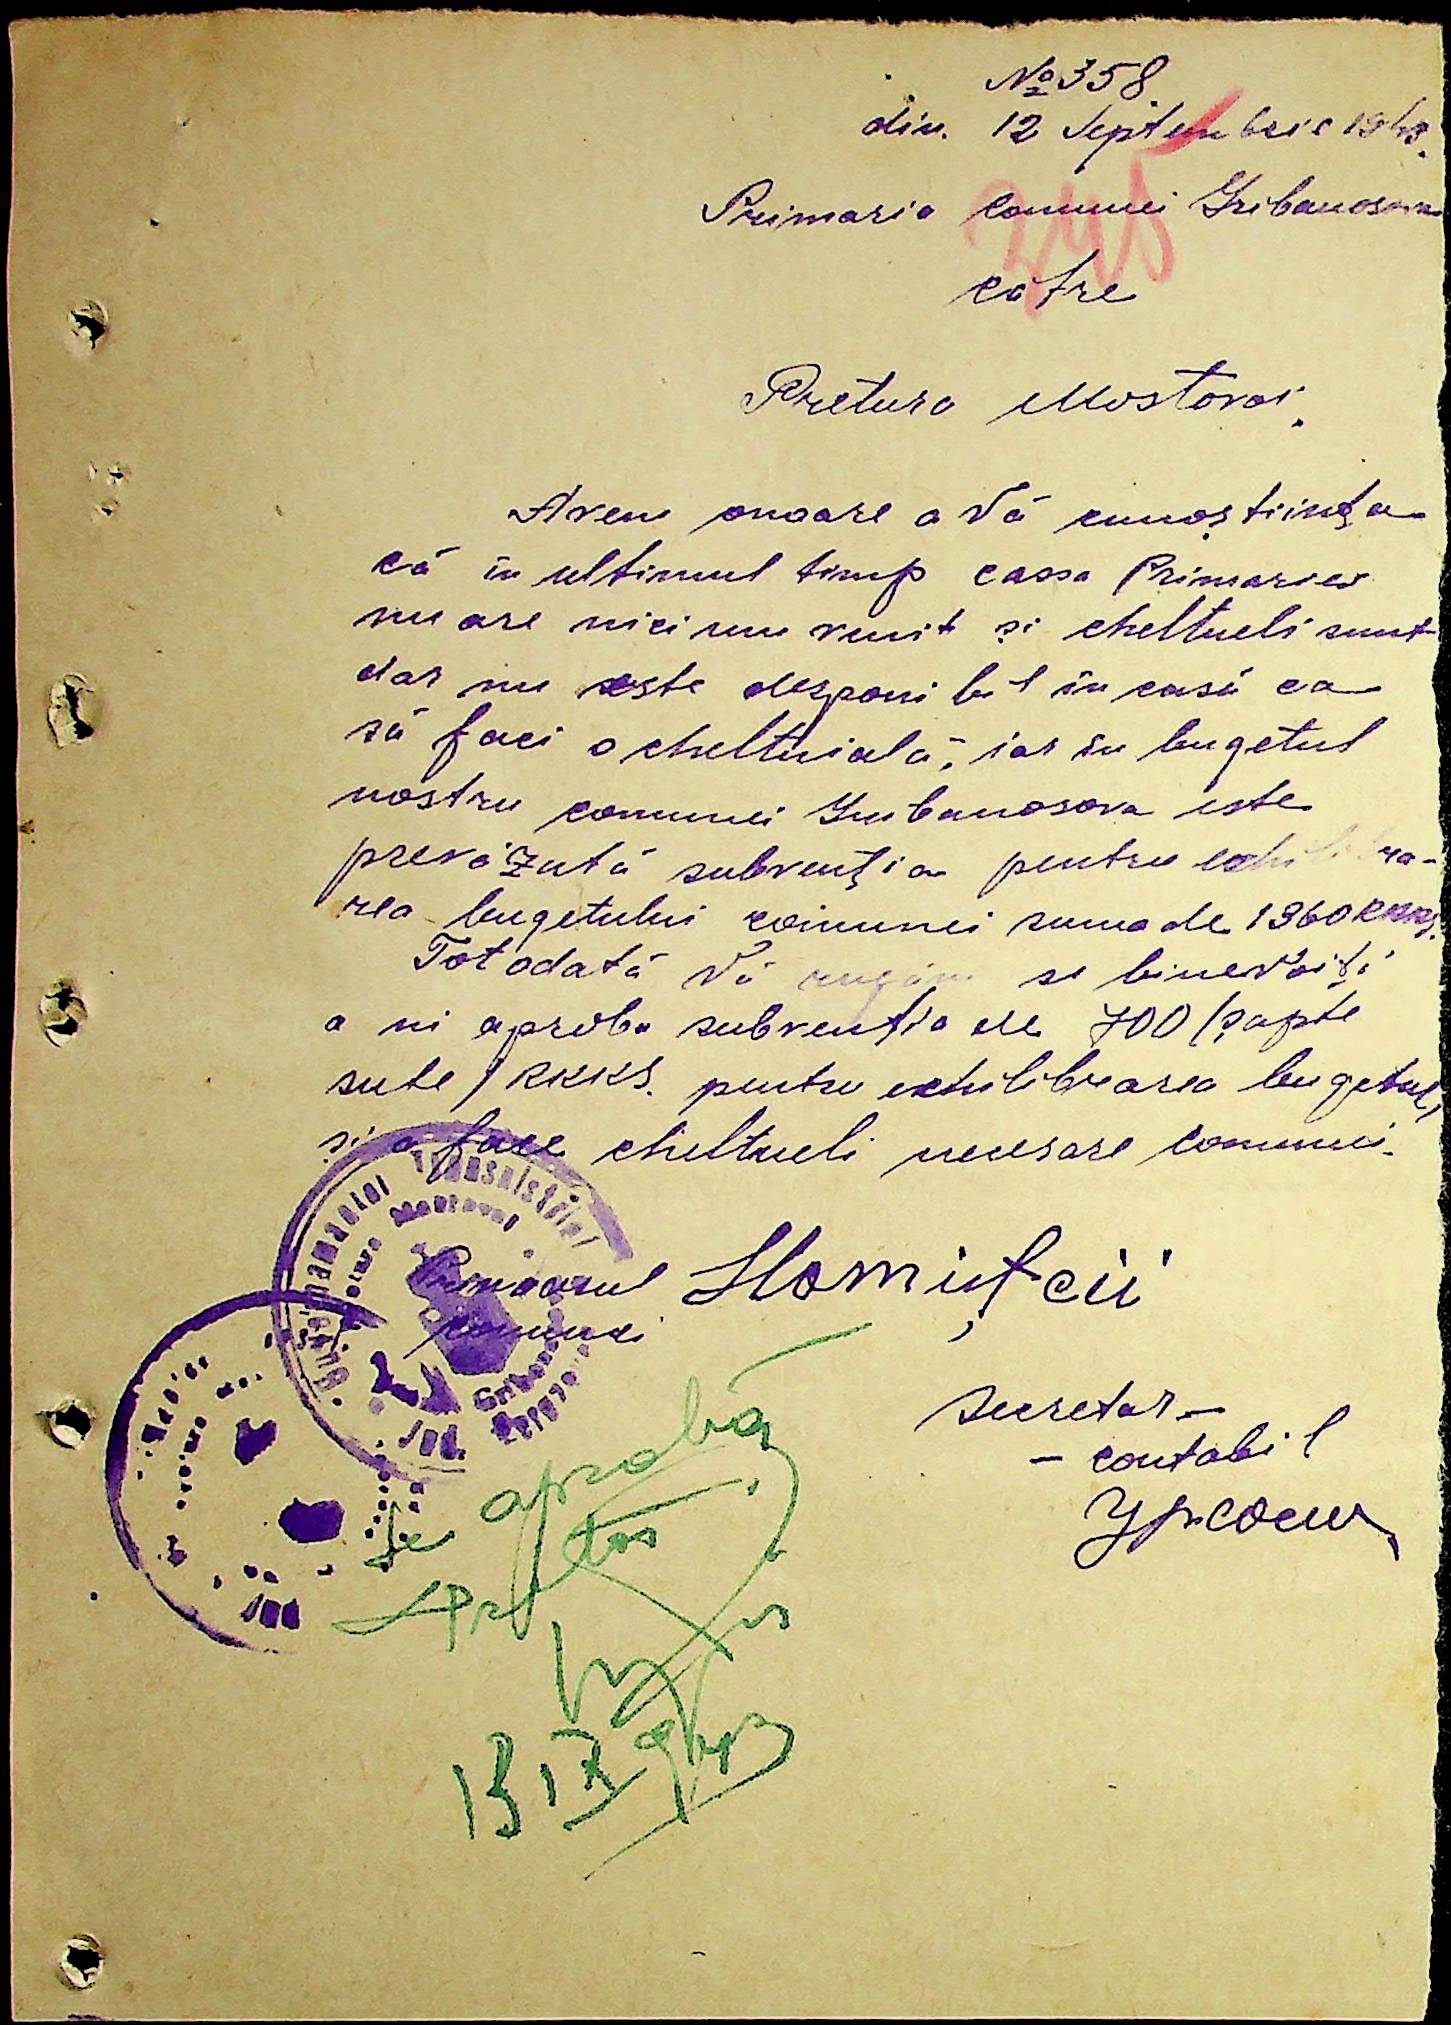 № 358
din. 12 Septembrie 194
Primaria comunei Gribanosova
catre
Pretura Mostovoi.
Avem onoare a Vă cunoștiința
că în ultimul timp cassa Primariei
nu are nici un venit și cheltueli sunt
dar nu este desponibil în casă ca
să faci o cheltuială, iar în bugetul
nostru comunei Gribanosova este
prevăzută subvenția pentru
rea bugetului comunei suma de 1360 RKKS.
Totodată Vă rugăm se binevoiți
a ni aproba subvenția de 700 /șapte
sute/ RKKS. pentru echilibrarea buget
și a face cheltueli necesare comunei.
Primarul
comunei
Guvernamantul Transnistriei
Mostovoi
Jud.
secretar-
- contabil
Se aprobă
13 IX 943
245